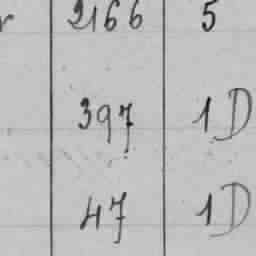 2166 5
397 1D
47 1D